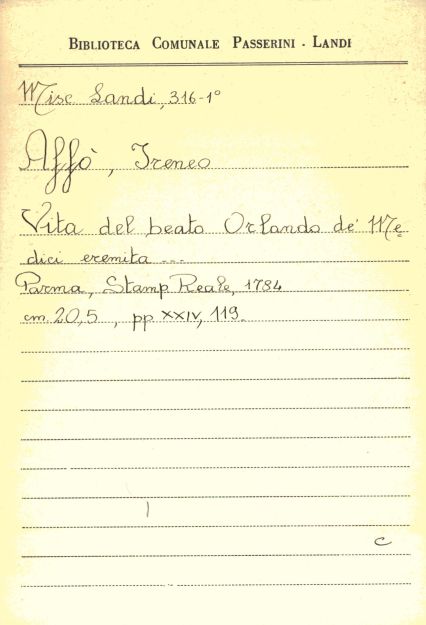 BIBLIOTECA COMUNALE PASSERINI - LANDI
Misc Landi, 316-1°
Affò, Ireneo
Vita del beato Orlando de' Me
dici eremita ...
Parma, Stamp Reale, 1784
cm 20,5, pp XXIV, 119.
c